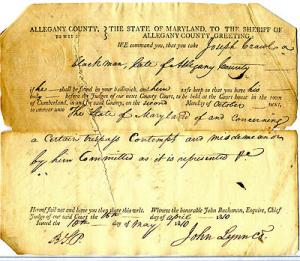 ALLEGANY COUNTY, THE STATE OF MARYLAND, TO THE SHERIFF OF
TO WIT ALLEGANY COUNTY, GREETING.
WE command you, that you take Joseph
black man, late of Allegany County
if he shall be found in your bailiwick, and him safe keep so that you have his
body before the Judges of our next County Court, to be held at the Court house in the town
of Cumberland, in and for said County, on the second Monday of October next,
to answer unto The State of Maryland of and concerning
a certain trespass Contempt and misdemeanor
by him Committed as it is represented
Hereof fail not and have you then there this writ. Witness the honorable John Buchanan, Esquire, Chief
Judge of our said Court the day of april 1810
Issued the 10th day of May 1810
John Lynn Ct.